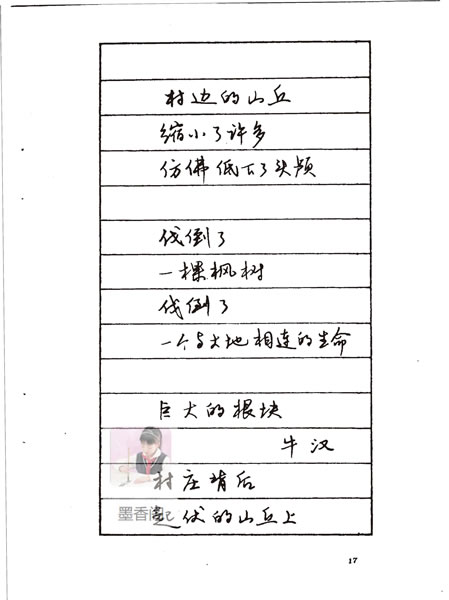 村边的山丘
缩小了许多
仿佛低下了头颅
伐倒了
一棵枫树
伐倒了
一个与大地相连的生命
巨大的根块
牛汉
村庄背后
起伏的山丘上
墨香阁
17